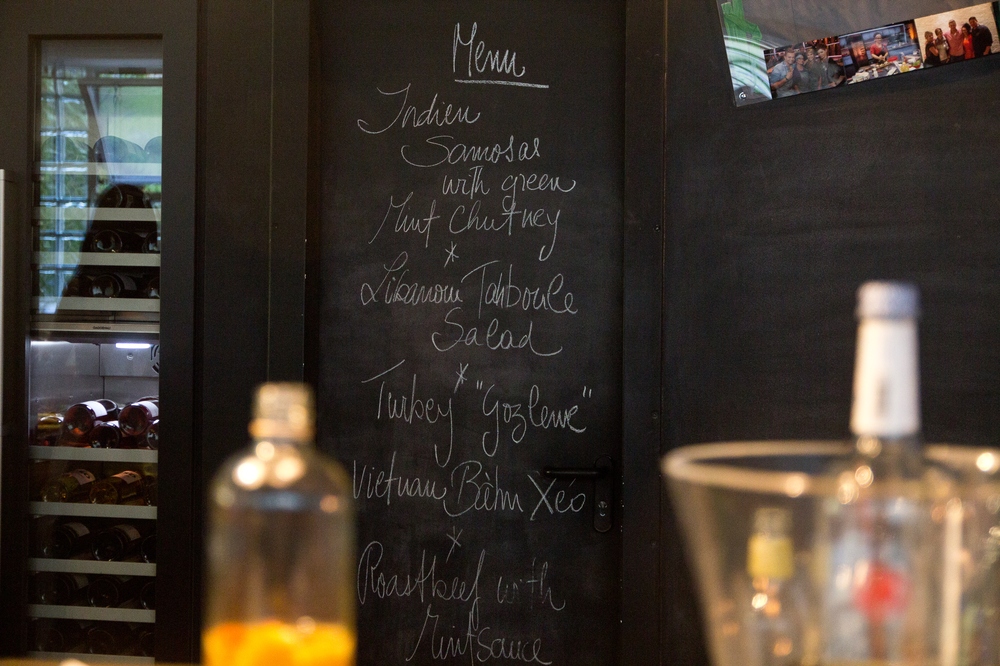 Menu
Indien
Samosas
with green
Mint Chutney
*
Libanon Tahboule
Salad
*
Turkey "Gözleme"
Vietnam Bành Xéo
*
Roastbeef with
Mintsauce